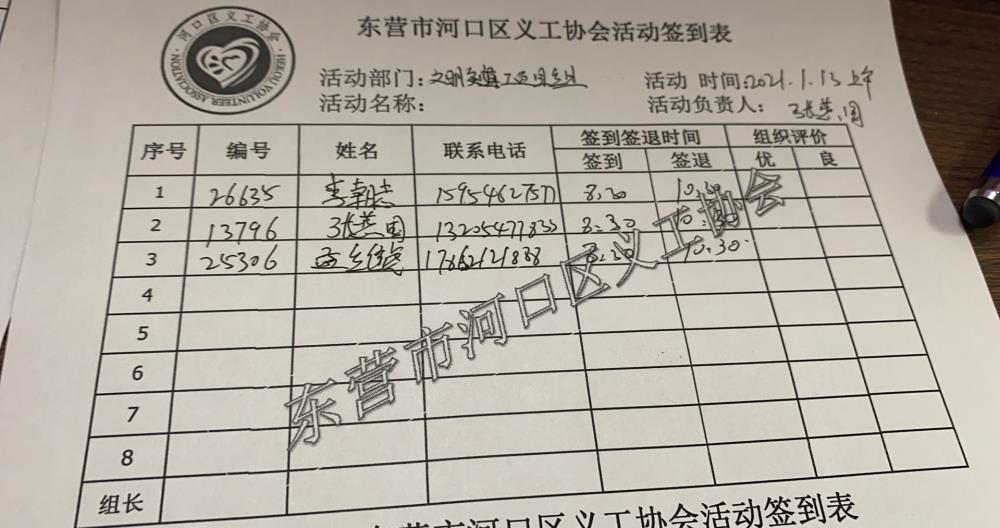 河口区义工协会
HEKOU VOLUNTEER ASSOCIATION
东营市河口区义工协会活动签到表
活动部门: 活动 时间:2021.1.13上午
活动名称: 活动负责人: 张燕国
序号 编号 姓名 联系电话 签到签退时间 组织评价
签到 签退 优 良
1 26635 李朝志 15954627577 8.30 10.30
2 13796 张燕国 13205477833 8.30 10.30
3 25306 17862121888 8.30 10.30
4
5
6
7
8
组长
东营市河口区义工协会
东营市河口区义工协会活动签到表